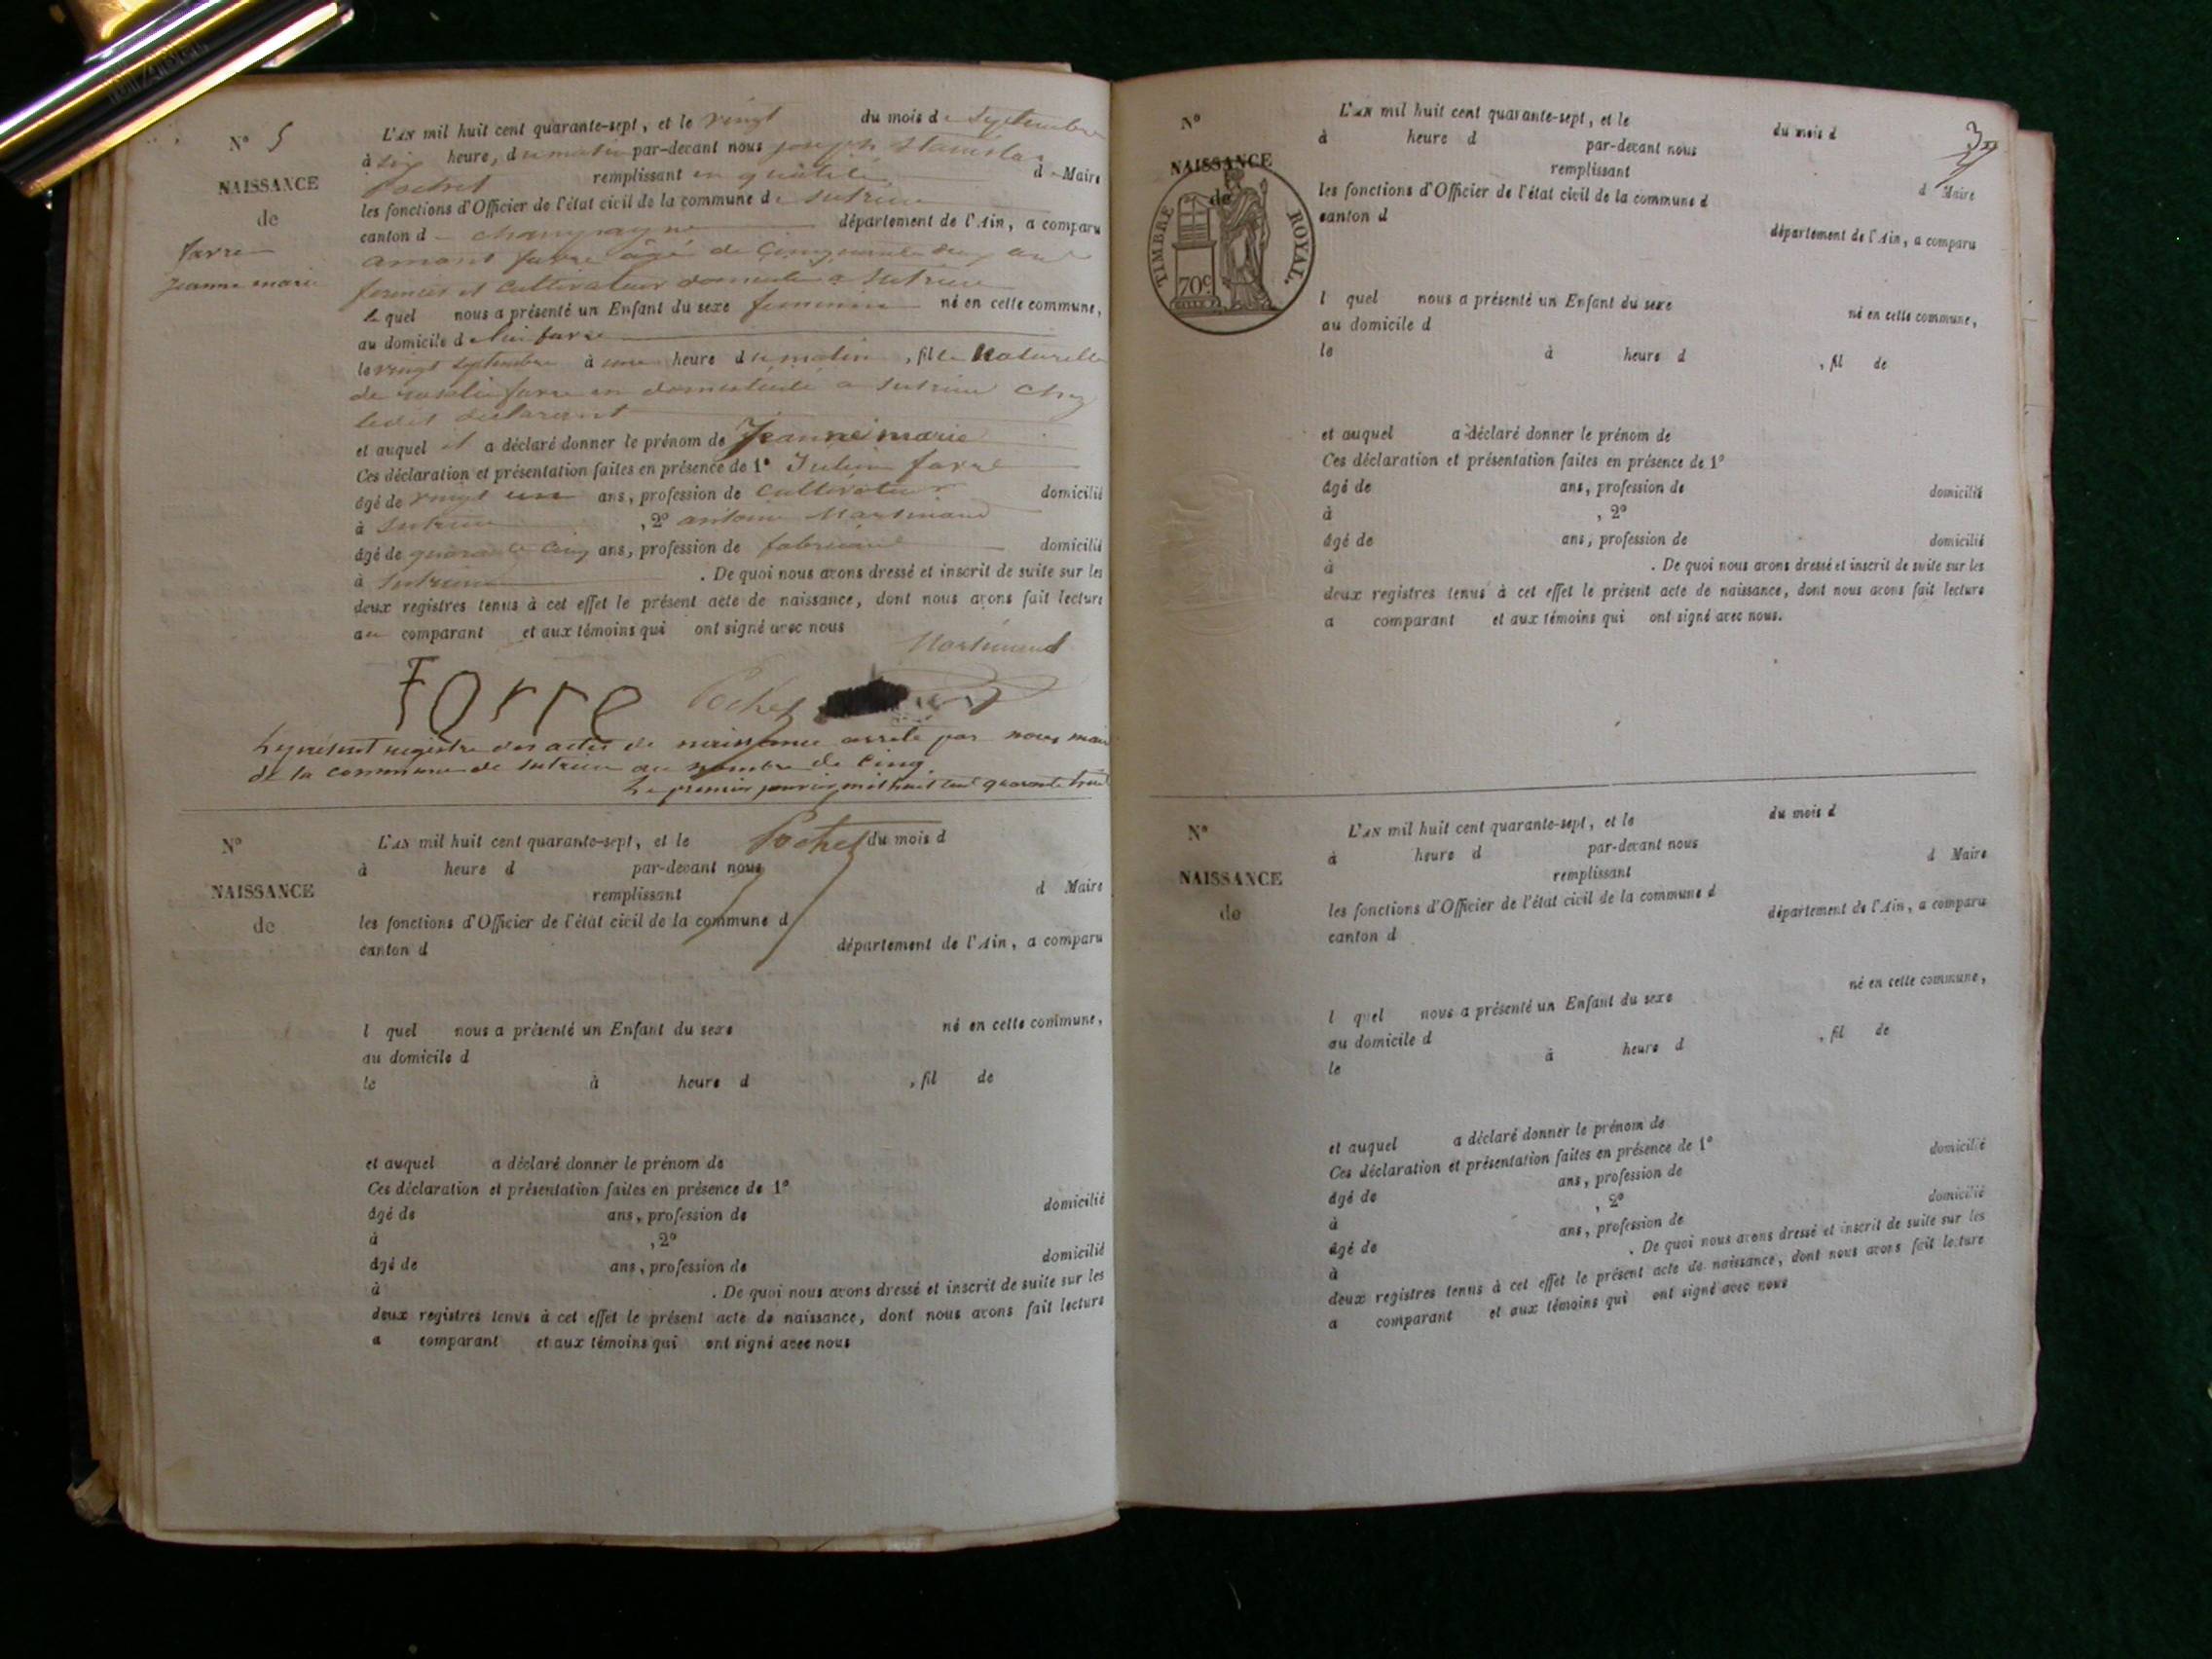 N° 5
NAISSANCE
de
favre
Jeanne marie
L'AN mil huit cent quarante-sept, et le vingt du mois de Septembre
à six heure, du matin par-devant nous joseph Stanislas
Pochet remplissant en qualité d Maire
les fonctions d'Officier de l'état civil de la commune de Sutrieu
canton d champagne département de l'Ain, a comparu
favre âgé de cinquante ans
et cultivateur domicilié a Sutrieu
lequel nous a présenté un Enfant du sexe feminin né en cette commune,
au domicile de lui favre
le vingt septembre à une heure du matin, fille Naturelle
de favre en domesticité a Sutrieu chez
ledit déclarant
et auquel il a déclaré donner le prénom de Jeanne marie
Ces déclaration et présentation faites en présence de 1° Julien favre
âgé de vingt un ans, profession de cultivateur domicilié
à Sutrieu, 2° antoine Martinand
âgé de quarante cinq ans, profession de fabricant domicilié
à Sutrieu. De quoi nous avons dressé et inscrit de suite sur les
deux registres tenus à cet effet le présent acte de naissance, dont nous avons fait lecture
au comparant et aux témoins qui ont signé avec nous
Martinand
Favre Pochet
Le présent registre des actes de naissance arrêté par nous maire
de la commune de Sutrieu au nombre de cinq.
Le premier janvier mil huit cent quarante huit
Pochet
N°
NAISSANCE
de
L'AN mil huit cent quarante-sept, et le du mois d
à heure d par-devant nous
remplissant d Maire
les fonctions d'Officier de l'état civil de la commune d
canton d département de l'Ain, a comparu
l quel nous a présenté un Enfant du sexe né en cette commune,
au domicile d
le à heure d , fil de
et auquel a déclaré donner le prénom de
Ces déclaration et présentation faites en présence de 1°
âgé de ans, profession de domicilié
à , 2°
âgé de ans, profession de domicilié
à . De quoi nous avons dressé et inscrit de suite sur les
deux registres tenus à cet effet le présent acte de naissance, dont nous avons fait lecture
a comparant et aux témoins qui ont signé avec nous
N°
NAISSANCE
de
TIMBRE ROYAL.
70c
L'AN mil huit cent quarante-sept, et le du mois d
à heure d par-devant nous
remplissant d Maire
les fonctions d'Officier de l'état civil de la commune d
canton d département de l'Ain, a comparu
l quel nous a présenté un Enfant du sexe né en cette commune,
au domicile d
le à heure d , fil de
et auquel a déclaré donner le prénom de
Ces déclaration et présentation faites en présence de 1°
âgé de ans, profession de domicilié
à , 2°
âgé de ans, profession de domicilié
à . De quoi nous avons dressé et inscrit de suite sur les
deux registres tenus à cet effet le présent acte de naissance, dont nous avons fait lecture
a comparant et aux témoins qui ont signé avec nous.
N°
NAISSANCE
de
L'AN mil huit cent quarante-sept, et le du mois d
à heure d par-devant nous
remplissant d Maire
les fonctions d'Officier de l'état civil de la commune d
canton d département de l'Ain, a comparu
l quel nous a présenté un Enfant du sexe né en cette commune,
au domicile d
le à heure d , fil de
et auquel a déclaré donner le prénom de
Ces déclaration et présentation faites en présence de 1°
âgé de ans, profession de domicilié
à , 2°
âgé de ans, profession de domicilié
à . De quoi nous avons dressé et inscrit de suite sur les
deux registres tenus à cet effet le présent acte de naissance, dont nous avons fait lecture
a comparant et aux témoins qui ont signé avec nous